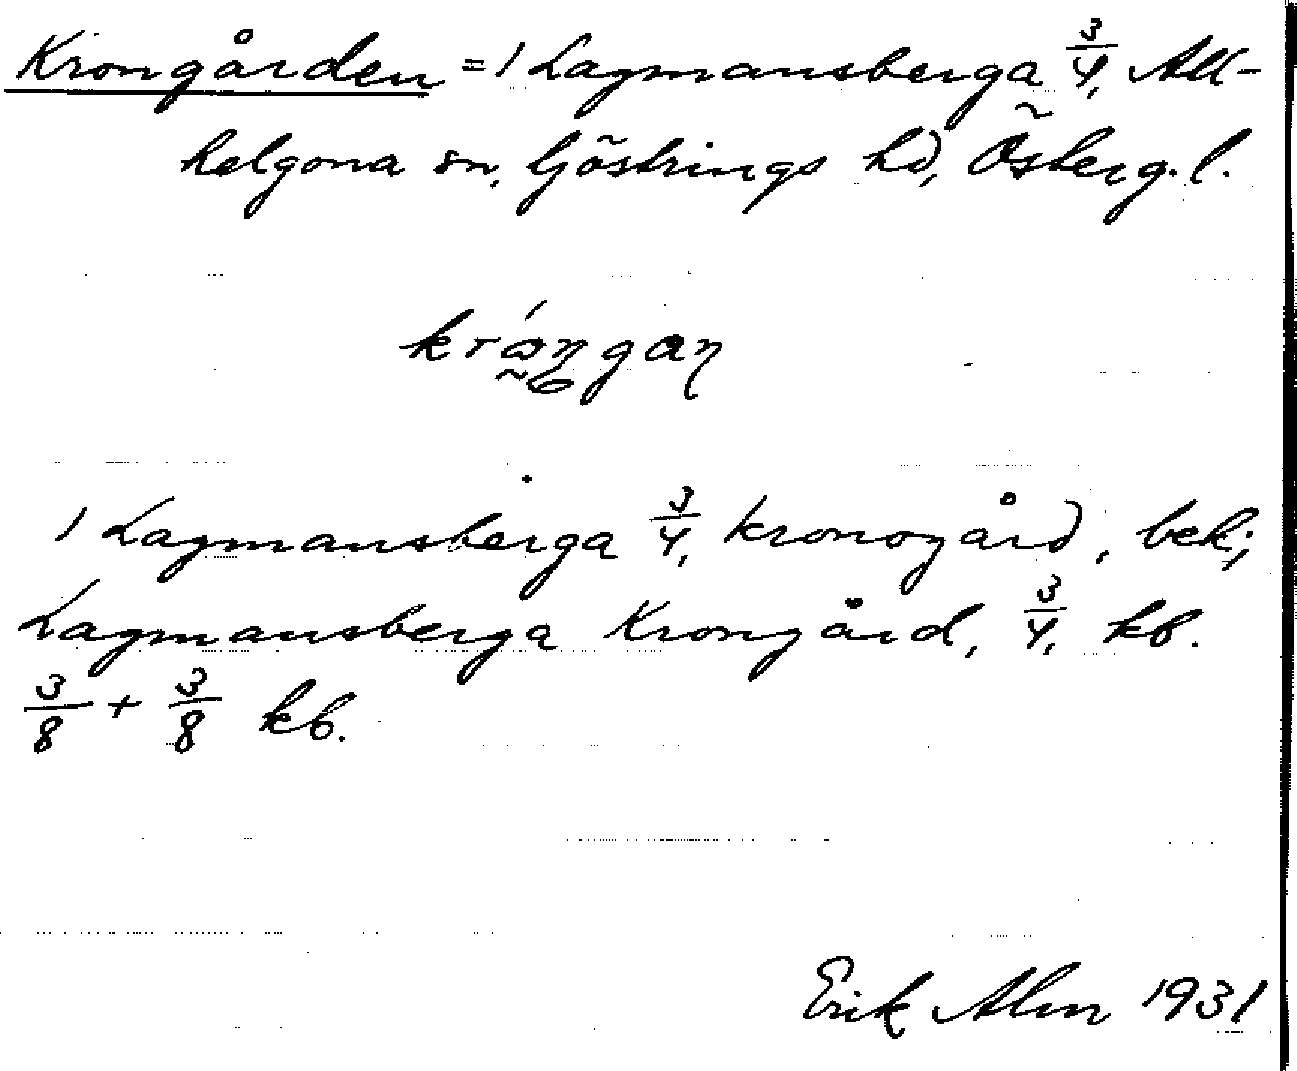 Krongården = 1 Lagmansberga 3/4, All-
helgona sn, Göstrings hd, Österg. l.
1 Lagmansberga 3/4, kronogård, bek;
Lagmansberga Krongård, 3/4, kb.
3/8 + 3/8 kb.
Erik Alm 1931